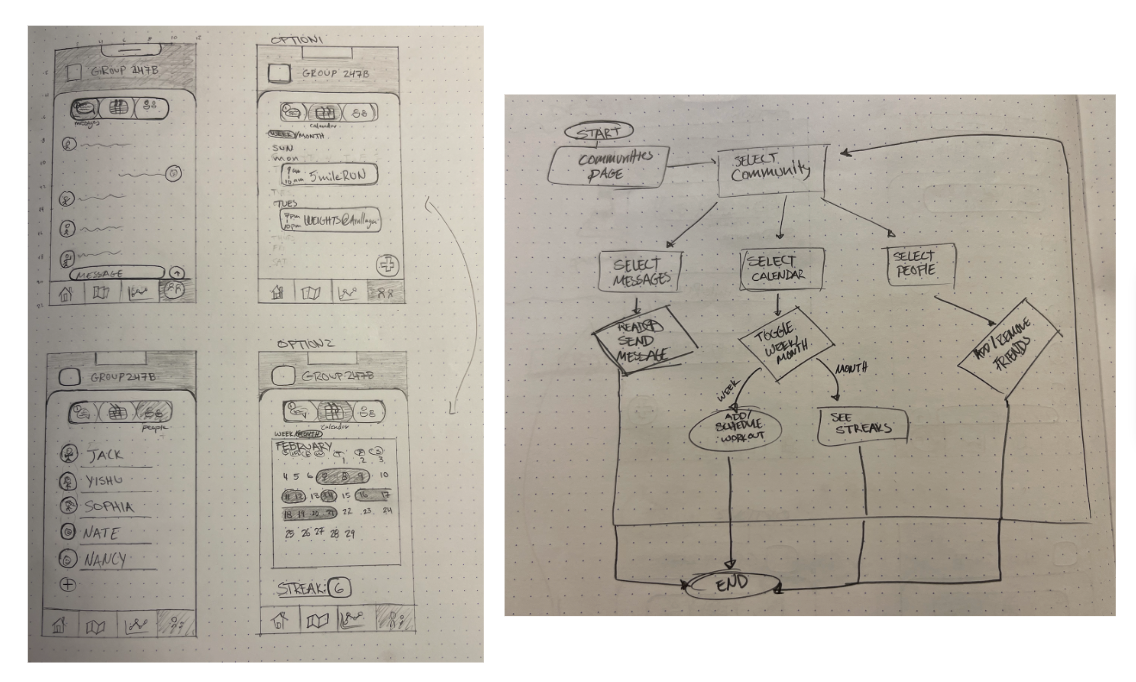 GROUP 247B
MESSAGE
OPTION1
GROUP 247B
calendar
WEEK/MONTH
SUN
mon
5mileRUN
TUES
WEIGHTS@
GROUP247B
people
JACK
YISHU
SOPHIA
NATE
NANCY
OPTION2
GROUP 247B
calendar
WEEK/MONTH
FEBRUARY
1 2 3
4 5 6 7 8 9 10
11 12 13 14 15 16 17
18 19 20 21 22 23 24
25 26 27 28 29
STREAK: 6
START
COMMUNITIES
PAGE
SELECT
Community
SELECT
MESSAGES
SELECT
CALENDAR
SELECT
PEOPLE
SEND
MESSAGE
TOGGLE
WEEK/
MONTH
ADD/REMOVE
FRIENDS
WEEK
MONTH
ADD/
SCHEDULE
WORKOUT
SEE
STREAKS
END